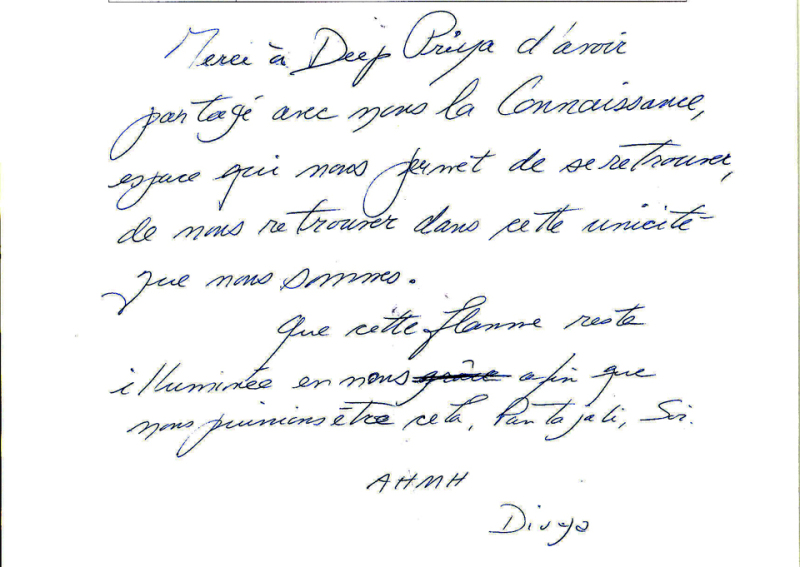 Merci à Deep Priya d'avoir
partagé avec nous la Connaissance,
espace qui nous permet de se retrouver,
de nous retrouver dans cette unicité
que nous sommes.
Que cette flamme reste
illuminée en nous grâce afin que
nous puissions être cela, Pantajali, Soi.
AHMH
Divya